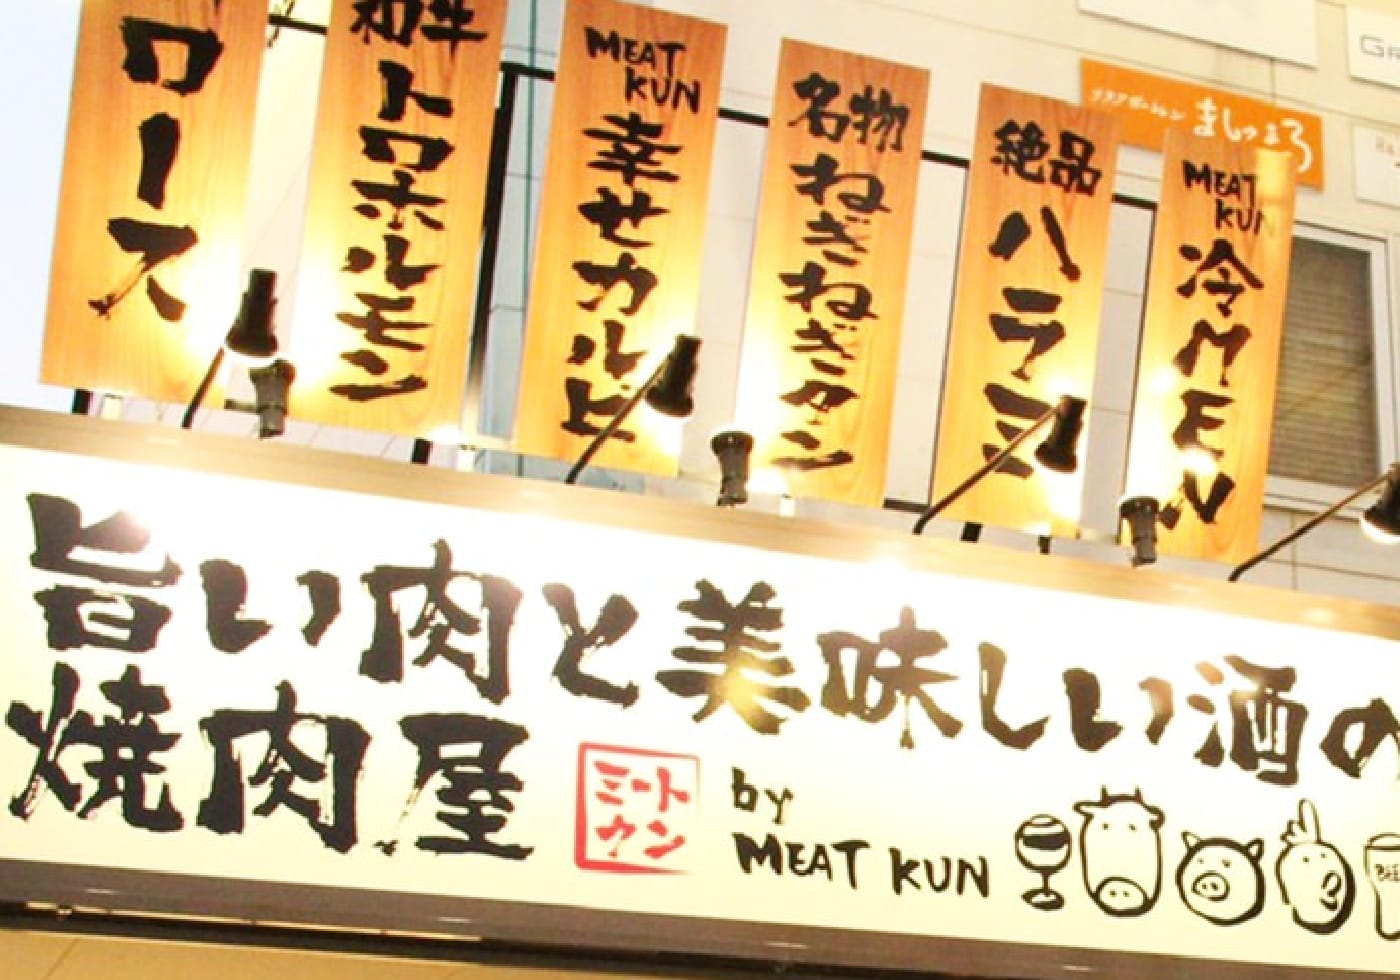 ロース
和牛
トロホルモン
MEAT
KUN
幸せカルビ
名物
ねぎねぎタン
絶品
ハラミ
MEAT
KUN
冷MEN
ましゅまろ
旨い肉と美味しい酒の
焼肉屋
ミート
クン
by
MEAT KUN